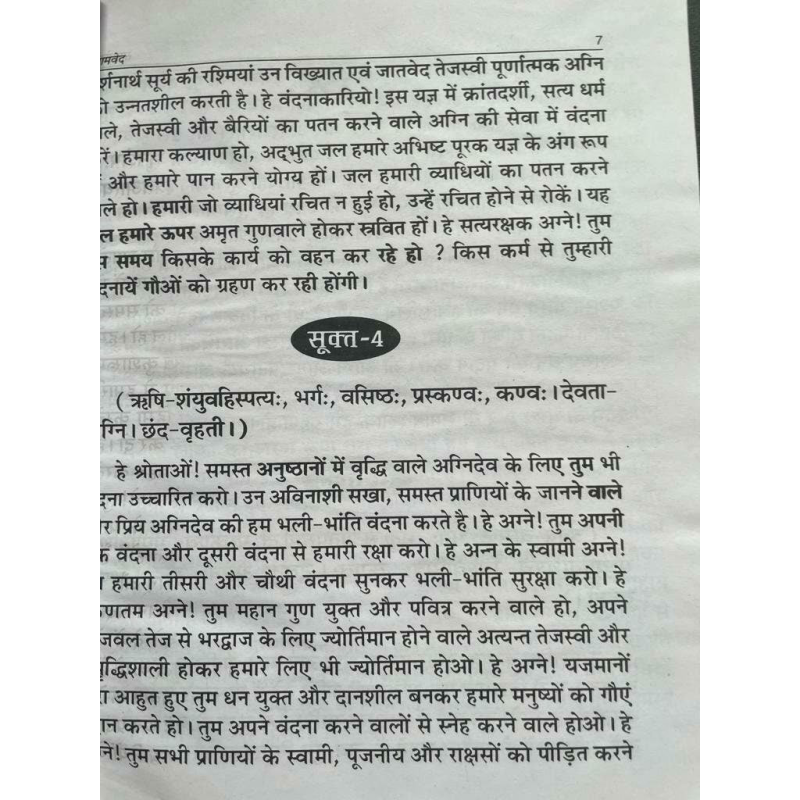 7
मवेद
र्शनार्थ सूर्य की रश्मियां उन विख्यात एवं जातवेद तेजस्वी पूर्णात्मक अग्नि
ो उन्नतशील करती है। हे वंदनाकारियो! इस यज्ञ में क्रांतदर्शी, सत्य धर्म
ले, तेजस्वी और बैरियों का पतन करने वाले अग्नि की सेवा में वंदना
रें। हमारा कल्याण हो, अद्भुत जल हमारे अभिष्ट पूरक यज्ञ के अंग रूप
और हमारे पान करने योग्य हों। जल हमारी व्याधियों का पतन करने
ले हो। हमारी जो व्याधियां रचित न हुई हो, उन्हें रचित होने से रोकें। यह
ल हमारे ऊपर अमृत गुणवाले होकर स्त्रवित हों। हे सत्यरक्षक अग्ने! तुम
स समय किसके कार्य को वहन कर रहे हो ? किस कर्म से तुम्हारी
दनायें गौओं को ग्रहण कर रही होंगी।
सूक्त-4
( ऋषि-शंयुवहिस्पत्यः, भर्गः, वसिष्ठः, प्रस्कण्वः, कण्वः। देवता-
ग्नि। छंद-वृहती।)
हे श्रोताओं! समस्त अनुष्ठानों में वृद्धि वाले अग्निदेव के लिए तुम भी
दना उच्चारित करो। उन अविनाशी सखा, समस्त प्राणियों के जानने वाले
र प्रिय अग्निदेव की हम भली-भांति वंदना करते है। हे अग्ने! तुम अपनी
क वंदना और दूसरी वंदना से हमारी रक्षा करो। हे अन्न के स्वामी अग्ने!
हमारी तीसरी और चौथी वंदना सुनकर भली-भांति सुरक्षा करो। हे
णतम अग्ने! तुम महान गुण युक्त और पवित्र करने वाले हो, अपने
जवल तेज से भरद्वाज के लिए ज्योर्तिमान होने वाले अत्यन्त तेजस्वी और
ृद्धिशाली होकर हमारे लिए भी ज्योर्तिमान होओ। हे अग्ने! यजमानों
रा आहुत हुए तुम धन युक्त और दानशील बनकर हमारे मनुष्यों को गौएं
ान करते हो। तुम अपने वंदना करने वालों से स्नेह करने वाले होओ। हे
ने! तुम सभी प्राणियों के स्वामी, पूजनीय और राक्षसों को पीड़ित करने